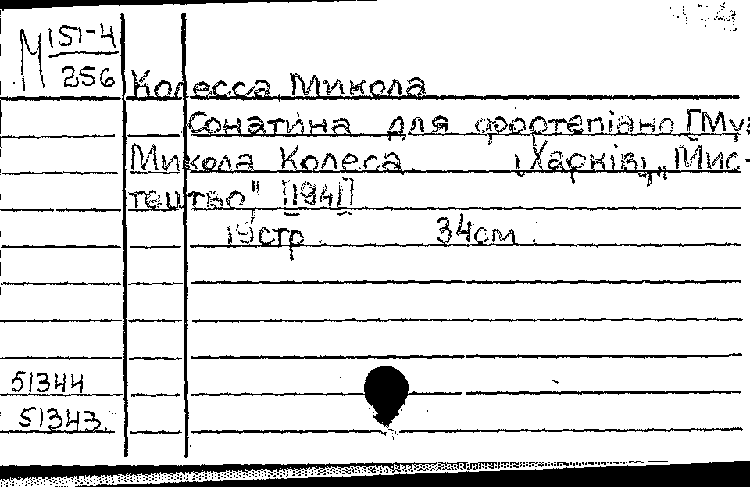 М 151-4
256
Колесса Микола
Сонатина для фортепіано [Му
Микола Колеса. Харків, „Мис-
тецтво", [1941]
19 стр. 34 см.
51344
51343.